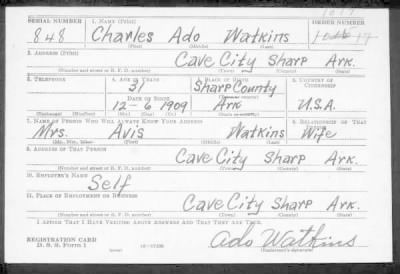 1017
SERIAL NUMBER 1. NAME (Print) ORDER NUMBER
848 Charles Ado Watkins 17
(First) (Middle) (Last)
2. ADDRESS (Print)
Cave City Sharp Ark.
(Number and street or R. F. D. number) (Town) (County) (State)
3. TELEPHONE 4. AGE IN YEARS 5. PLACE OF BIRTH 6. COUNTRY OF CITIZENSHIP
31 Sharp County
DATE OF BIRTH (Town or county)
12-6 1909 Ark U.S.A.
(Exchange) (Number) (Mo.) (Day) (Yr.) (State or country)
7. NAME OF PERSON WHO WILL ALWAYS KNOW YOUR ADDRESS 8. RELATIONSHIP OF THAT PERSON
Mrs. Avis Watkins Wife
(Mr., Mrs., Miss) (First) (Middle) (Last)
9. ADDRESS OF THAT PERSON
Cave City Sharp Ark
(Number and street or R. F. D. number) (Town) (County) (State)
10. EMPLOYER'S NAME
Self
11. PLACE OF EMPLOYMENT OR BUSINESS
Cave City Sharp Ark.
(Number and street or R. F. D. number) (Town) (County) (State)
I AFFIRM THAT I HAVE VERIFIED ABOVE ANSWERS AND THAT THEY ARE TRUE.
REGISTRATION CARD
D. S. S. Form 1 Ado Watkins
(Registrant's signature)